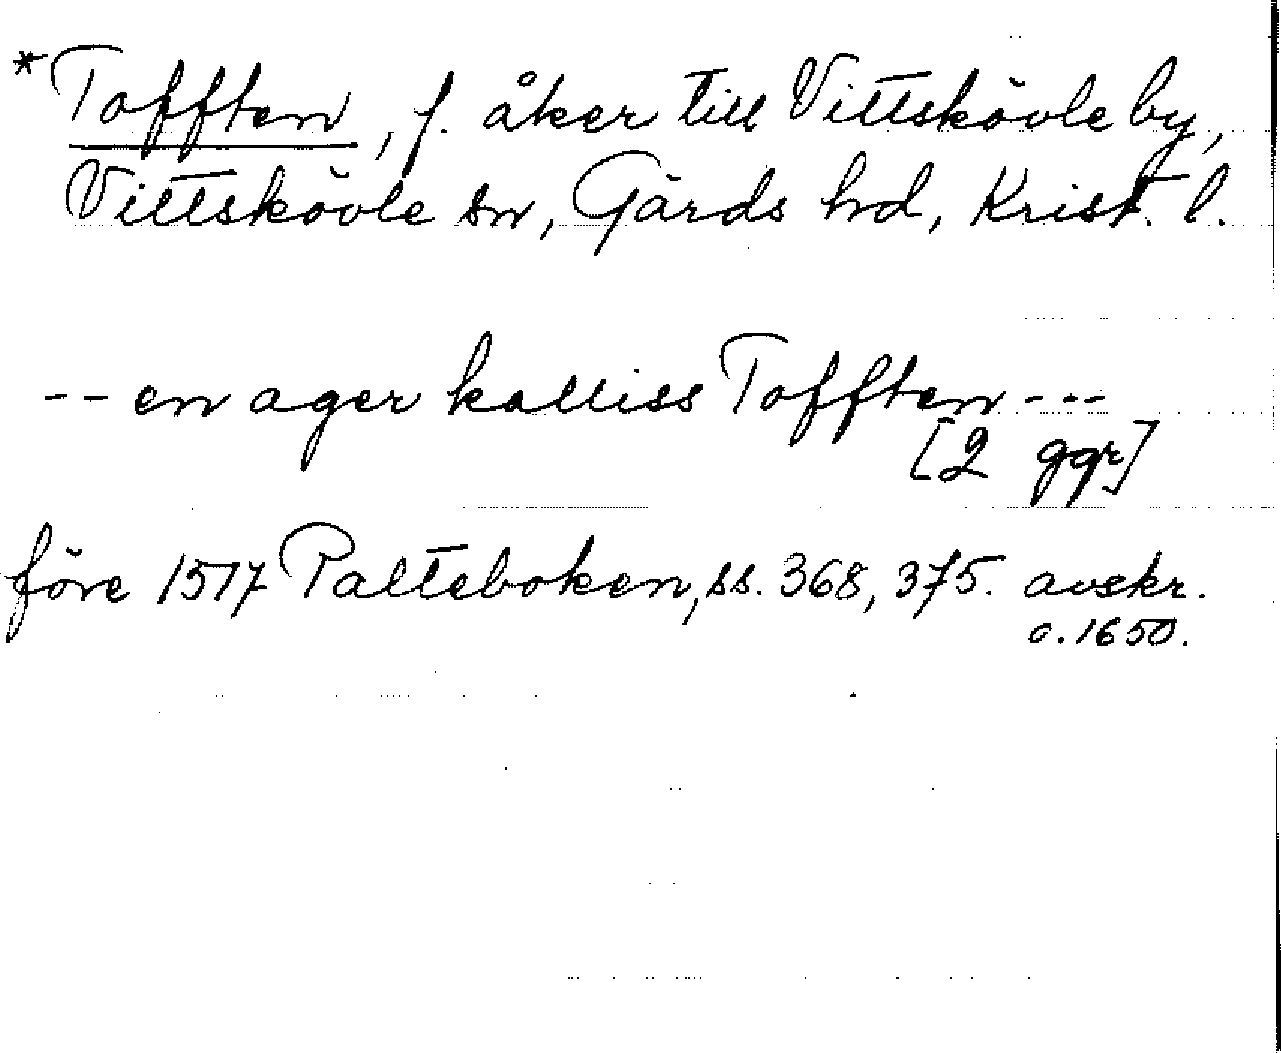 *Tofften, f. åker till Vittskövle by,
Vittskövle sn, Gärds hd, Krist. l.
-- en ager kalliss Tofften ---
[2 ggr]
före 1517 Palteboken, ss. 368, 375. avskr.
c. 1650.